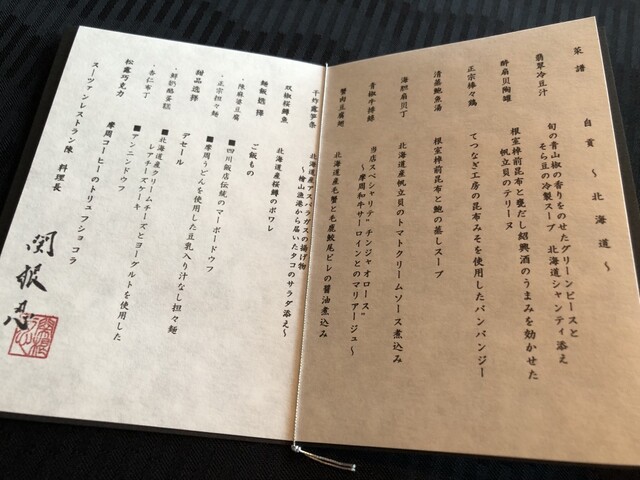 菜譜
自貢 ～北海道～
翡翠冷豆汁
旬の青山椒の香りをのせたグリーンピースと
そら豆の冷製スープ 北海道シャンティ添え
酔扇貝陶罐
根室棹前昆布と甕だし紹興酒のうまみを効かせた
帆立貝のテリーヌ
正宗棒々鶏
てつなぎ工房の昆布みそを使用したバンバンジー
清蒸鮑魚湯
根室棹前昆布と鮑の蒸しスープ
海胆扇貝丁
北海道産帆立貝のトマトクリームソース煮込み
青椒牛排絲
当店スペシャリテ"チンジャオロース"
～摩周和牛サーロインとのマリアージュ～
蟹肉豆腐翅
北海道産毛蟹と毛鹿鮫尾ビレの醤油煮込み
干炸露笋条
北海道産アスパラガスの揚げ物
～檜山漁港から届いたタコのサラダ添え～
双椒桜鱒魚
北海道産桜鱒のポワレ
麺飯選擇
ご飯もの
・陳麻婆豆腐
■四川飯店伝統のマーボードウフ
・正宗担々麺
■摩周うどんを使用した豆乳入り汁なし担々麺
甜品選擇
デセール
・鮮奶酪蛋糕
■北海道産クリームチーズとヨーグルトを使用した
レアチーズケーキ
・杏仁布丁
■アンニンドウフ
松露巧克力
摩周コーヒーのトリュフショコラ
スーツァンレストラン陳 料理長